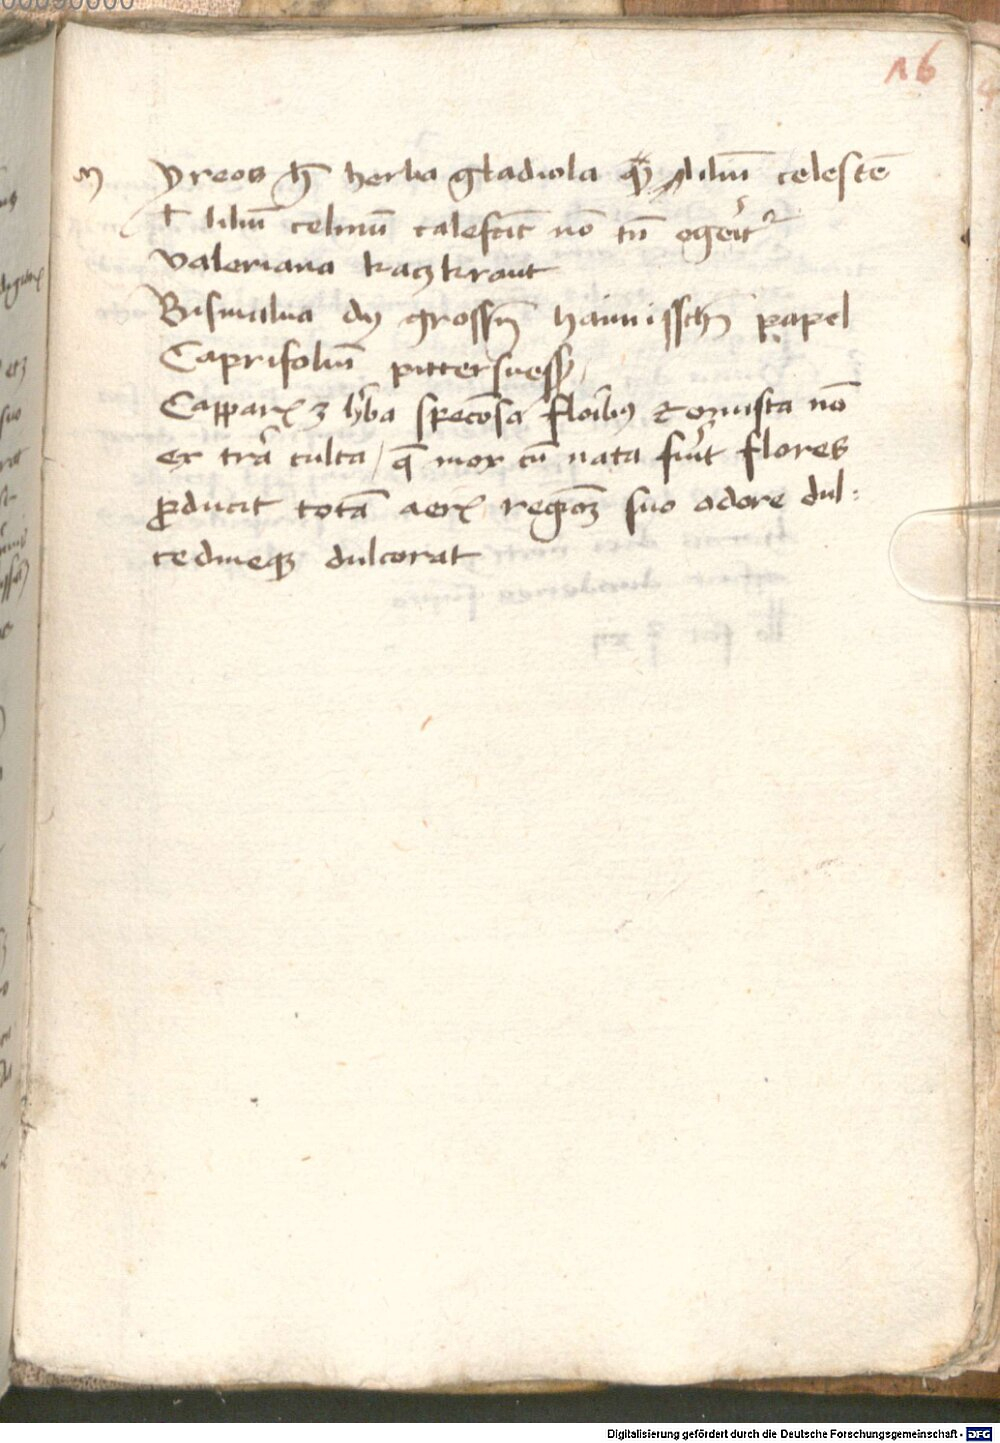 16
yreos herba gladiola lilium celeste
lilium celinum calefacit non egerit
Valeriana kaczkraut
Bismalua dy grossen haimisschen papel
Caprifolium pittersuess
Cappar herba speciosa floribus non
ex terra culta / que mox cum nata fuerit flores
producit totam aeris regionem suo odore dul:
cedineque dulcorat
Digitalisierung gefördert durch die Deutsche Forschungsgemeinschaft - DFG